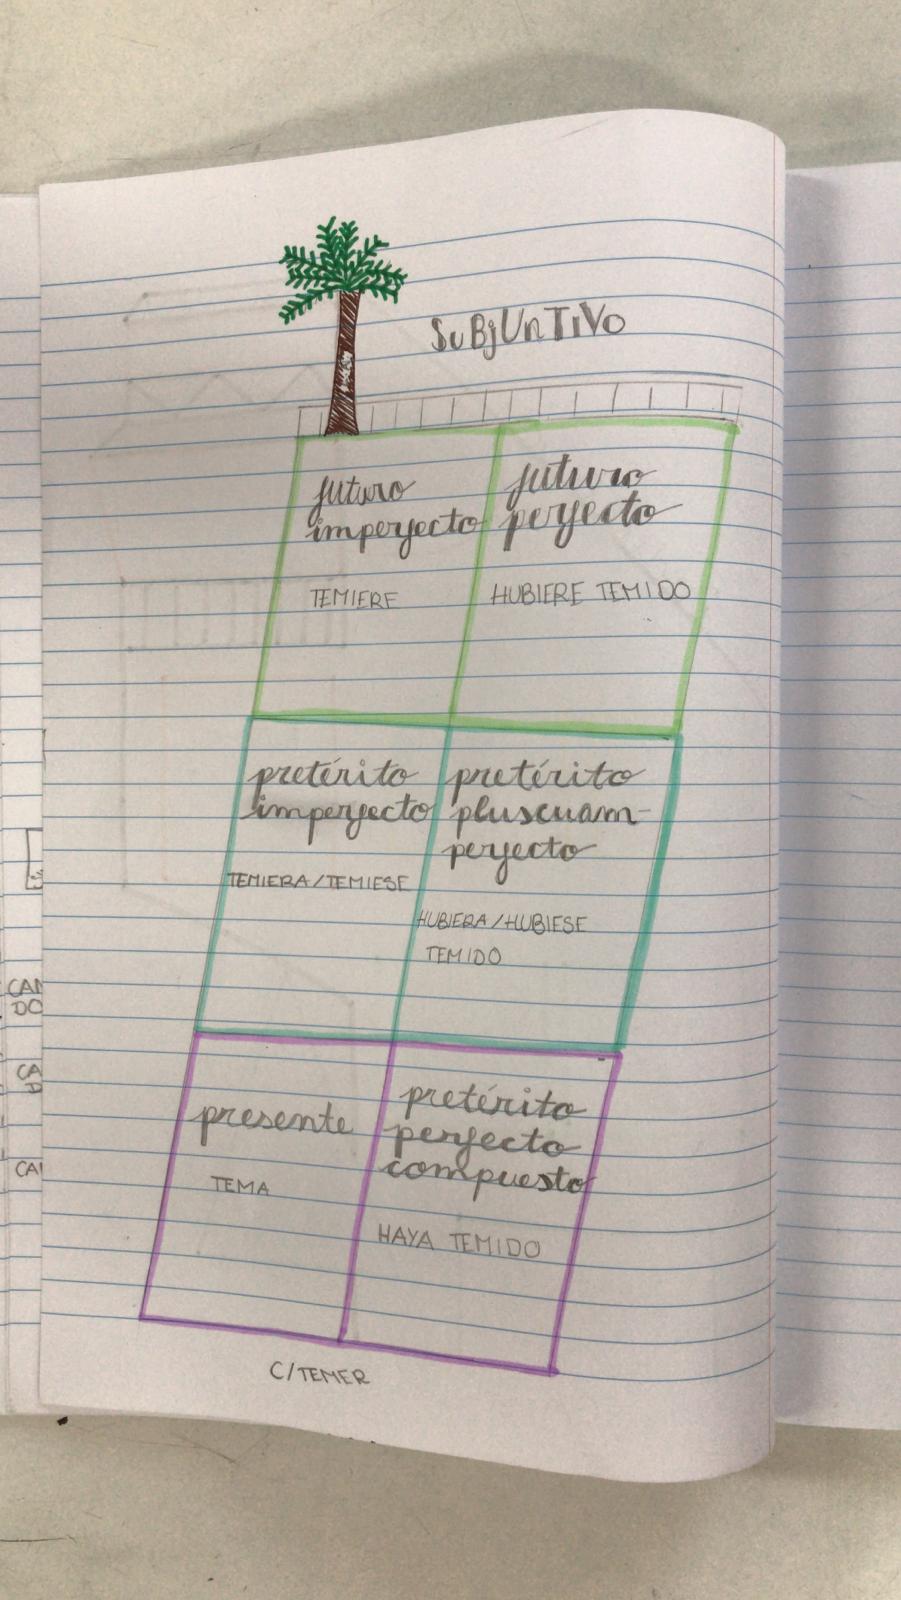 SuBjUnTiVo
futuro
imperfecto
TEMIERE
futuro
perfecto
HUBIERE TEMIDO
pretérito
imperfecto
TEMIERA/TEMIESE
pretérito
pluscuam-
perfecto
HUBIERA/HUBIESE
TEMIDO
presente
TEMA
pretérito
perfecto
compuesto
HAYA TEMIDO
C/TEMER
CAN
DO
CA
D
CA